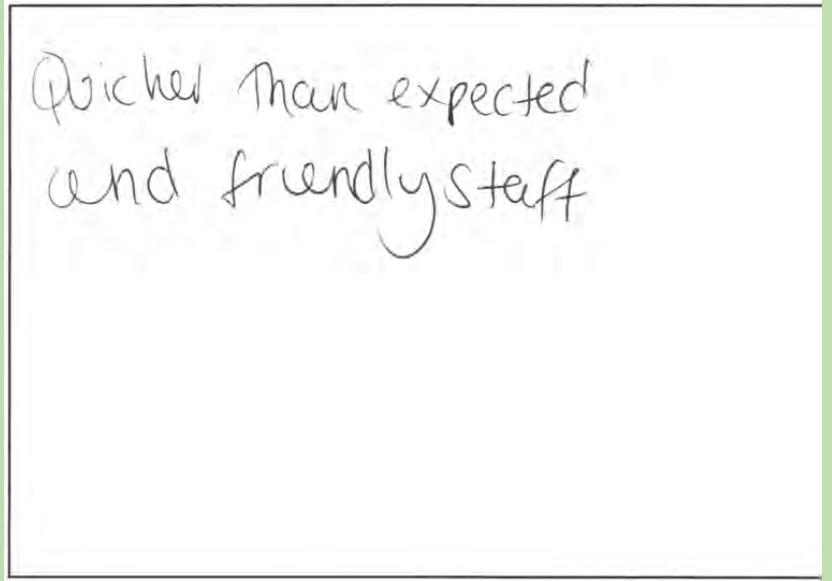 Quicker than expected
and friendly staff